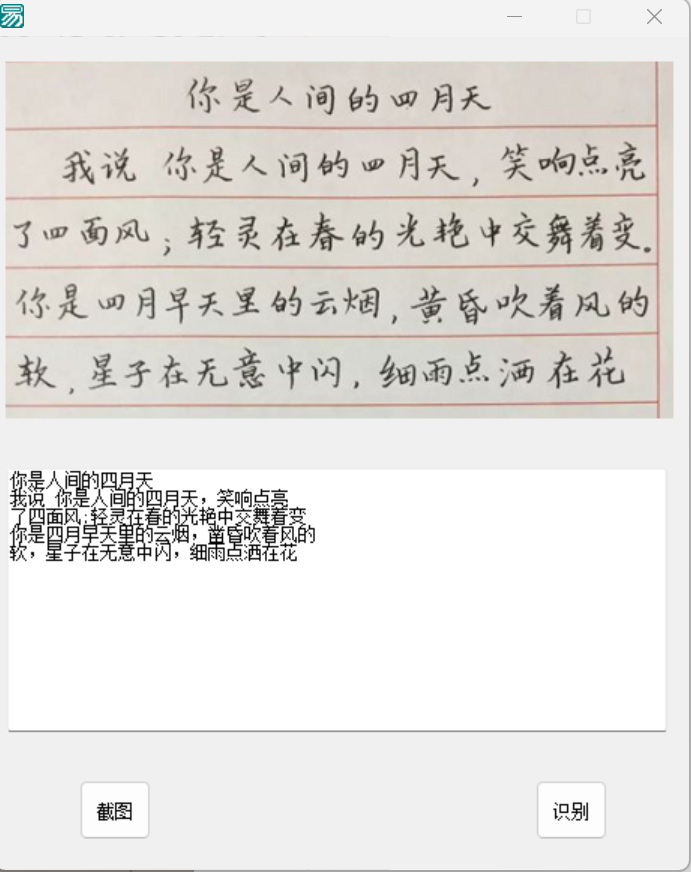 易
你是人间的四月天
我说 你是人间的四月天,笑响点亮
了四面风;轻灵在春的光艳中交舞着变。
你是四月早天里的云烟,黄昏吹着风的
软,星子在无意中闪,细雨点洒在花
你是人间的四月天
我说 你是人间的四月天，笑响点亮
了四面风;轻灵在春的光艳中交舞着变
你是四月早天里的云烟，凿昏吹着风的
软，星子在无意中闪，细雨点洒在花
截图 识别